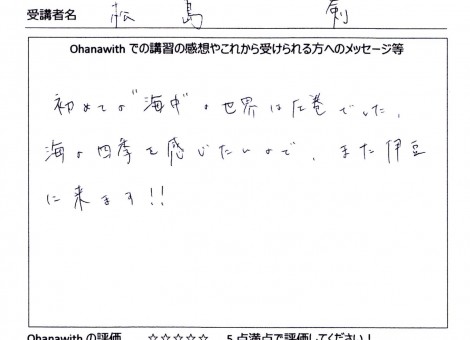 受講者名 松島 剣
Ohanawith での講習の感想やこれから受けられる方へのメッセージ等
初めての"海中"の世界は圧巻でした。
海の四季を感じたいので、また伊豆
に来ます!!
Ohanawith の評価 ☆☆☆☆☆ 5点満点で評価してください!